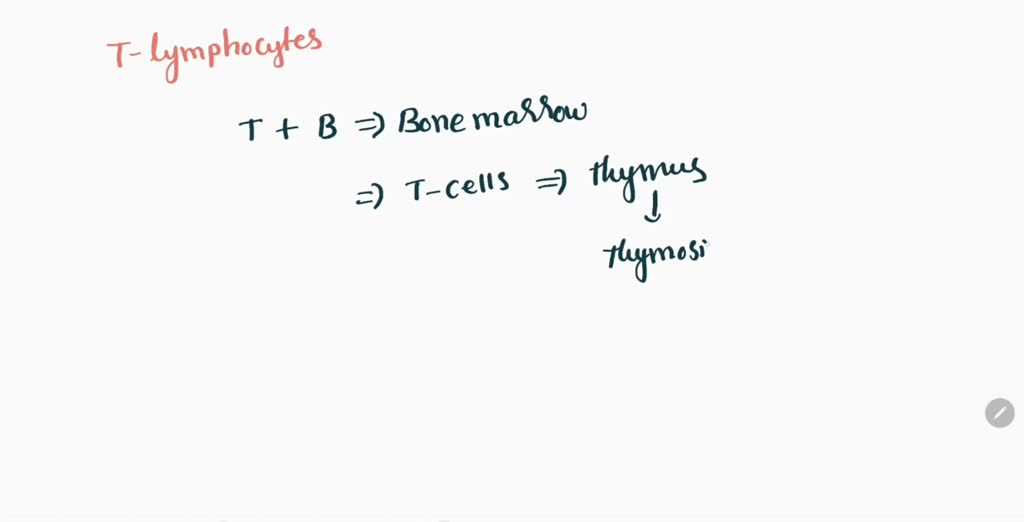 T-lymphocytes
T + B ⇒ Bone marrow
⇒ T-cells ⇒ thymus
↓
thymosi